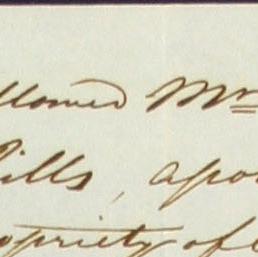 llowed Mr
ills, apo
opriety of